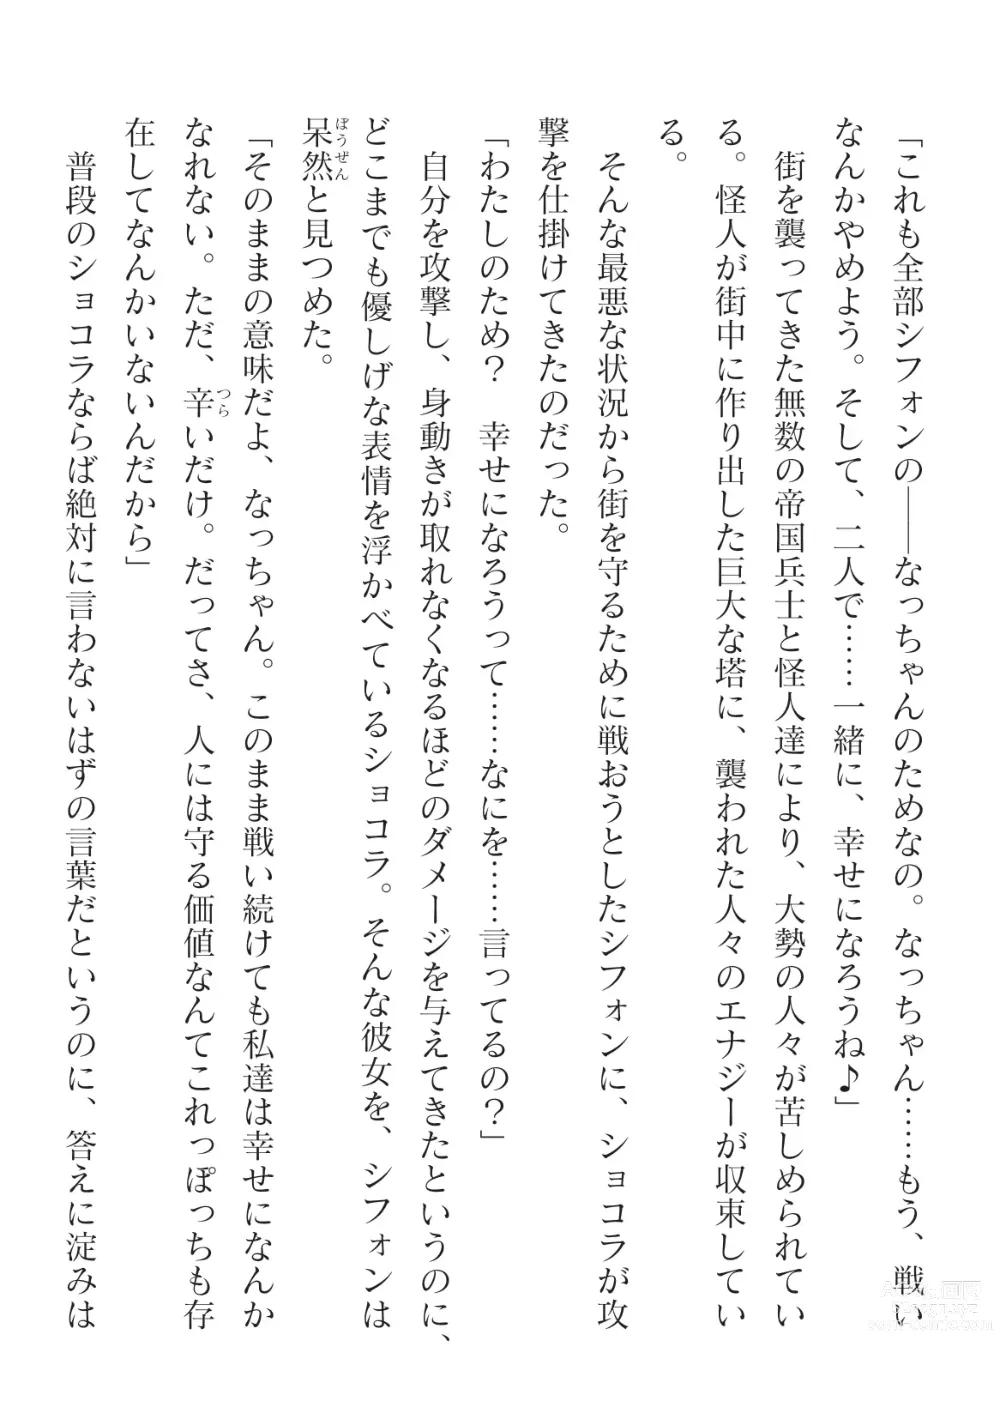 「これも全部シフォンの――なっちゃんのためなの。なっちゃん……もう、戦い
なんかやめよう。そして、二人で……一緒に、幸せになろうね♪」
街を襲ってきた無数の帝国兵士と怪人達により、大勢の人々が苦しめられてい
る。怪人が街中に作り出した巨大な塔に、襲われた人々のエナジーが収束してい
る。
そんな最悪な状況から街を守るために戦おうとしたシフォンに、ショコラが攻
撃を仕掛けてきたのだった。
「わたしのため？　幸せになろうって……なにを……言ってるの？」
自分を攻撃し、身動きが取れなくなるほどのダメージを与えてきたというのに、
どこまでも優しげな表情を浮かべているショコラ。そんな彼女を、シフォンは
ぼうぜん
呆然と見つめた。
「そのままの意味だよ、なっちゃん。このまま戦い続けても私達は幸せになんか
つら
なれない。ただ、辛いだけ。だってさ、人には守る価値なんてこれっぽっちも存
在してなんかいないんだから」
普段のショコラならば絶対に言わないはずの言葉だというのに、答えに淀みは